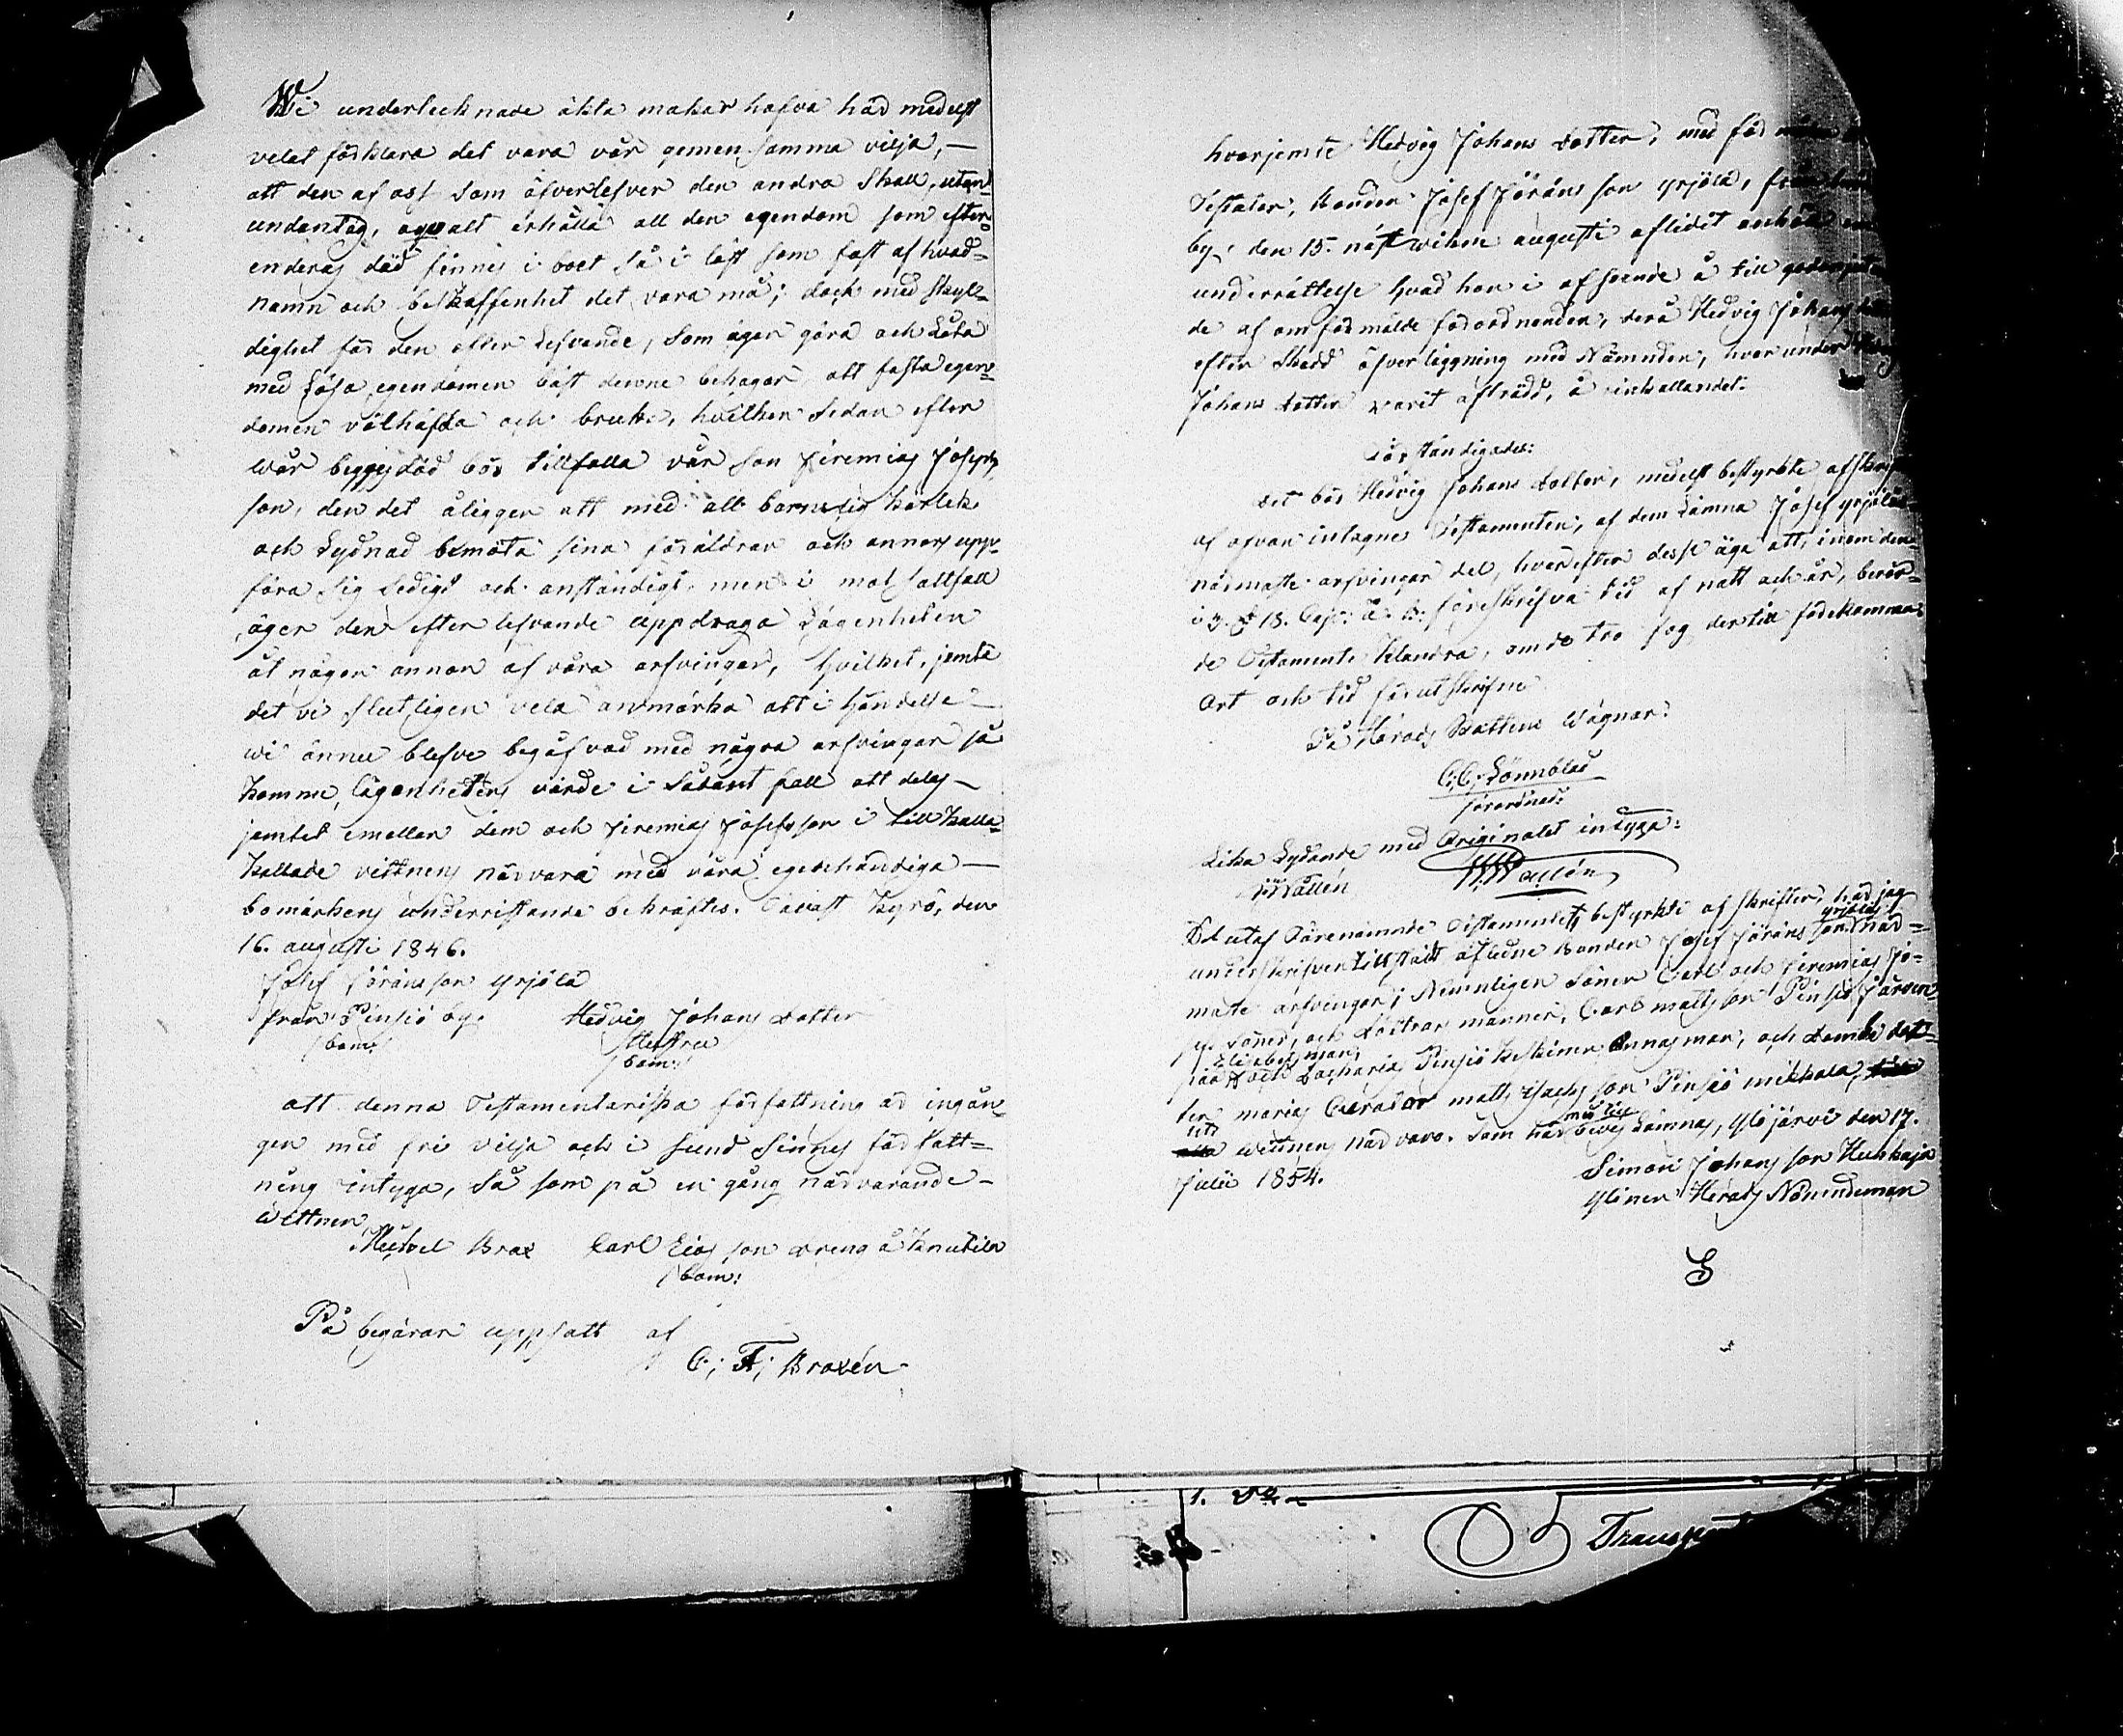 Wi undertecknade äkta makar hafva här medelst
velat förklara det vara vår gemensamma vilja, —
att den af oss som öfverlefver den andra skall, utan
undantag, orqvalt erhålla all den egendom som efter
enderas död finnes i boet så i löst som fast af hvad=
namn och beskaffenhet det vara må; dock med skyl=
dighet för den efter lefvande, som äger göra och låta
med lösa egendomen bäst denne behagar, att fasta egen=
domen välhäfda och bruka, hvilken sedan efter
wår begges död bör tillfalla vår son Jeremias Josephs
son, den det åligger att med all barnslig kärlek
och lydnad bemöta sina föräldrar och annars upp=
föra sig sedigt och anständigt, men i motsatt fall
äger den efter lefvande uppdraga Lägenheten
åt någon annan af våra arfvingar, hvilket, jemte
det vi slutligen vela anmärka att i händelse —
wi ännu blefve begåfvad med några arfvingar så
komme lägenhetens värde i sådant fall att delas —
jemlikt emellan dem och Jeremias Josefsson i till kalla=
kallade vittnens närvara med våra egenhändiga —
bomärkens underristande bekräftes. Tavast Kyrö, den
16. augusti 1846.
Josef Jöransson Yrjölä
från Pinsiö by. Hedvig Johans dotter
/bom:/ Hustru
/bom:/
att denna Testamentariska författning är ingån=
gen med fri vilja och i sund sinnes författ=
ning intyga, så som på en gång närvarande —
wittnen
Michel Brax Carl Elias son dreng å Knutila
/bom:
På begäran uppsatt af
C; F; Braxén
hvarjemte Hedvig Johans dotter, med förmälan
Testator, Bonden Josef Jörans son Yrjölä, från
by, den 15. nästwikne augusti aflidit anhöll om
underrättelse hvad hon i afseende å till godonjutan
de af omförmälde förordnanden, derå Hedvig Johans
efter skedd öfverläggning med Nämnden, hvarunder Hedvig
Johans dotter warit afträdd, å inkallandet.
Förständigades:
det bör Hedvig Johans dotter, medelst bestyrkte afskrifter
af ofvan intagne Testamenten, af dem lämna Josef Yrjöläs
närmaste arfvingar del, hvarefter desse äga att, inom den
i 3. § 18. Cap: Ä. B. föreskrifva tid af natt och år, berör=
de Testamente klandra, om de tro sog dertill förekomma,
Ort och tid förutskrifne
På Härads Rättens Wägnar:
C; C; Lönnblad
förordnad:
Lika lydande med Originalet intyga:
Wallén W Wallén
Del utaf Förenämnde Testamentets bestyrkte afskrifter, här jag
underskrifven tillstält afledne Bonden Josef Jörans son Yrjöläs när=
maste arfvingar; Nemnligen söner Carl och Jeremias Jo=
seps söner, och döttrar männer, Carl matts son Pinsiö Järven
pää Elisabets man, och Zacharias Pinsiö Keskinen Annas man, och
ter marias matts Isacs son Pinsiö mikkola,
uti wittnens närvaro. Som här med till bevis lämnas, Ylöjärvi den 17.
Julii 1854.
Simon Johans son Huhkaja
Ylinen Härads Nämndeman
S
1. d:o —
Transport